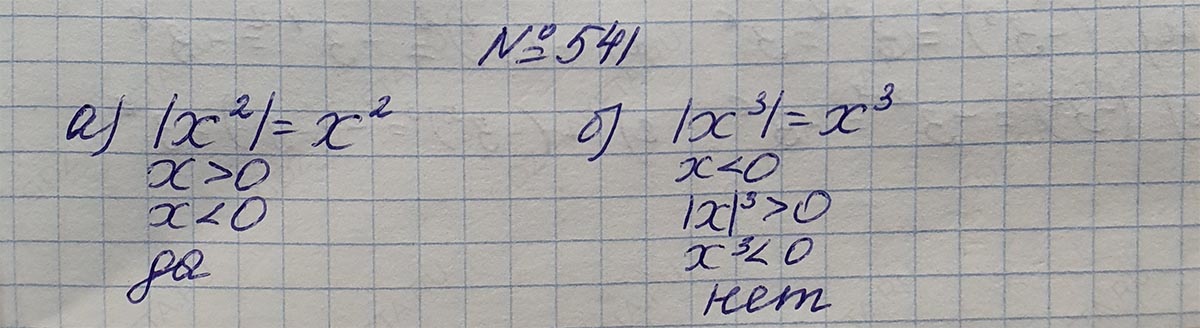 №541
а) |x²| = x²
x > 0
x < 0
да
б) |x³| = x³
x < 0
|x|³ > 0
x³ < 0
нет